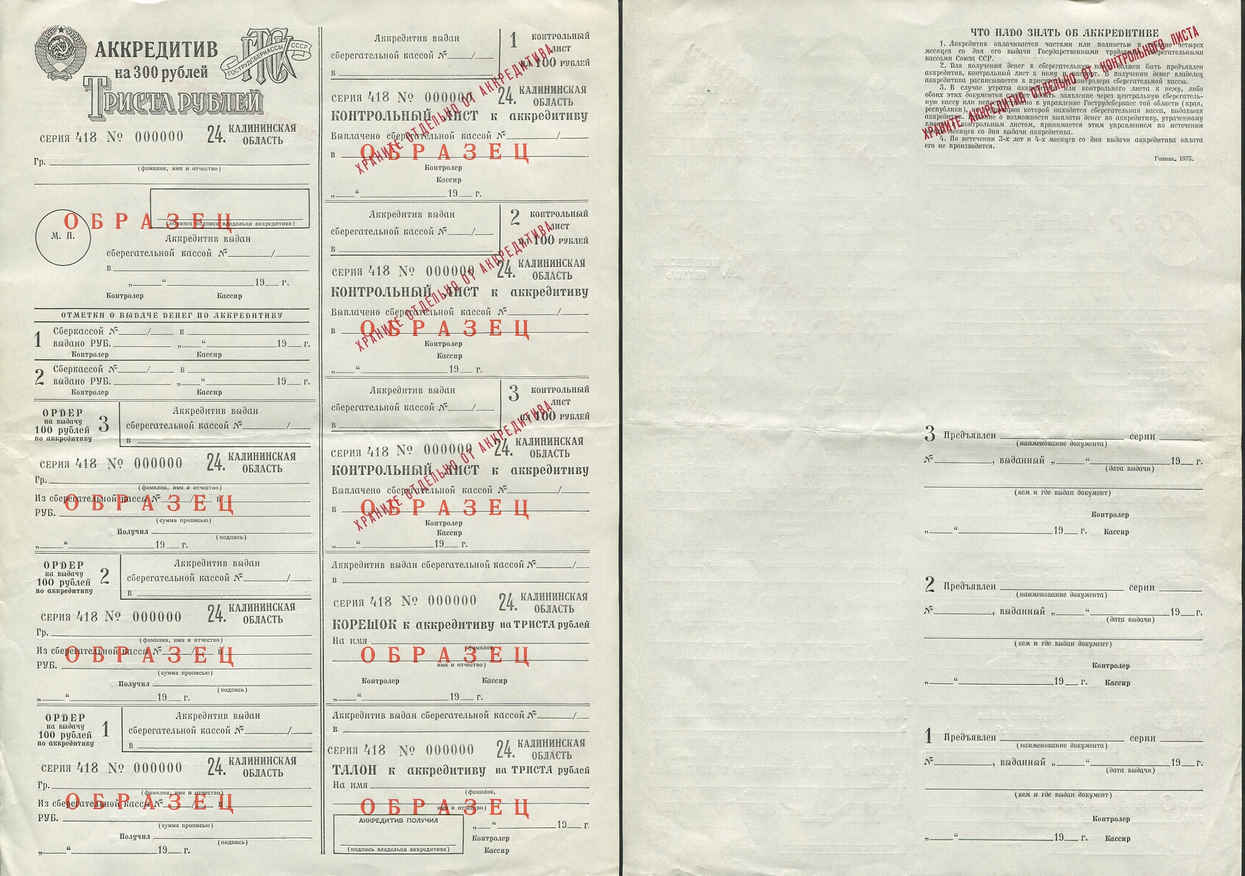 АККРЕДИТИВ
на 300 рублей
ТРИСТА РУБЛЕЙ
ГОСТРУДСБЕРКАССЫ СССР
СЕРИЯ 418 № 000000 24. КАЛИНИНСКАЯ ОБЛАСТЬ
Гр.
(фамилия, имя и отчество)
ОБРАЗЕЦ
М. П.
Аккредитив выдан
сберегательной кассой № /
в
„ “ 19 г.
Контролер Кассир
ОТМЕТКИ О ВЫДАЧЕ ДЕНЕГ ПО АККРЕДИТИВУ
1 Сберкассой № / в
выдано РУБ. „ “ 19 г.
Контролер Кассир
2 Сберкассой № / в
выдано РУБ. „ “ 19 г.
Контролер Кассир
ОРДЕР
на выдачу
100 рублей
по аккредитиву
3
Аккредитив выдан
сберегательной кассой № /
в
СЕРИЯ 418 № 000000 24. КАЛИНИНСКАЯ ОБЛАСТЬ
Гр.
(фамилия, имя и отчество)
Из сберегательной кассы № / в
ОБРАЗЕЦ
РУБ.
(сумма прописью)
Получил
(подпись)
„ “ 19 г.
ОРДЕР
на выдачу
100 рублей
по аккредитиву
2
Аккредитив выдан
сберегательной кассой № /
в
СЕРИЯ 418 № 000000 24. КАЛИНИНСКАЯ ОБЛАСТЬ
Гр.
(фамилия, имя и отчество)
Из сберегательной кассы № / в
ОБРАЗЕЦ
РУБ.
(сумма прописью)
Получил
(подпись)
„ “ 19 г.
ОРДЕР
на выдачу
100 рублей
по аккредитиву
1
Аккредитив выдан
сберегательной кассой № /
в
СЕРИЯ 418 № 000000 24. КАЛИНИНСКАЯ ОБЛАСТЬ
Гр.
(фамилия, имя и отчество)
Из сберегательной кассы № / в
ОБРАЗЕЦ
РУБ.
(сумма прописью)
Получил
(подпись)
„ “ 19 г.
Аккредитив выдан
сберегательной кассой № /
в
1 КОНТРОЛЬНЫЙ
ЛИСТ
на 100 РУБЛЕЙ
СЕРИЯ 418 № 000000 24. КАЛИНИНСКАЯ ОБЛАСТЬ
КОНТРОЛЬНЫЙ ЛИСТ к аккредитиву
ХРАНИТЕ ОТДЕЛЬНО ОТ АККРЕДИТИВА
Выплачено сберегательной кассой № /
в
ОБРАЗЕЦ
Контролер
Кассир
„ “ 19 г.
Аккредитив выдан
сберегательной кассой № /
в
2 КОНТРОЛЬНЫЙ
ЛИСТ
на 100 РУБЛЕЙ
СЕРИЯ 418 № 000000 24. КАЛИНИНСКАЯ ОБЛАСТЬ
КОНТРОЛЬНЫЙ ЛИСТ к аккредитиву
ХРАНИТЕ ОТДЕЛЬНО ОТ АККРЕДИТИВА
Выплачено сберегательной кассой № /
в
ОБРАЗЕЦ
Контролер
Кассир
„ “ 19 г.
Аккредитив выдан
сберегательной кассой № /
в
3 КОНТРОЛЬНЫЙ
ЛИСТ
на 100 РУБЛЕЙ
СЕРИЯ 418 № 000000 24. КАЛИНИНСКАЯ ОБЛАСТЬ
КОНТРОЛЬНЫЙ ЛИСТ к аккредитиву
ХРАНИТЕ ОТДЕЛЬНО ОТ АККРЕДИТИВА
Выплачено сберегательной кассой № /
в
ОБРАЗЕЦ
Контролер
Кассир
„ “ 19 г.
Аккредитив выдан сберегательной кассой № /
в
СЕРИЯ 418 № 000000 24. КАЛИНИНСКАЯ ОБЛАСТЬ
КОРЕШОК к аккредитиву на ТРИСТА рублей
На имя
(фамилия,
ОБРАЗЕЦ
имя и отчество)
Контролер Кассир
„ “ 19 г.
Аккредитив выдан сберегательной кассой № /
в
СЕРИЯ 418 № 000000 24. КАЛИНИНСКАЯ ОБЛАСТЬ
ТАЛОН к аккредитиву на ТРИСТА рублей
На имя
(фамилия,
ОБРАЗЕЦ
имя и отчество)
АККРЕДИТИВ ПОЛУЧИЛ
(подпись владельца аккредитива)
„ “ 19 г.
Контролер
Кассир
ЧТО НАДО ЗНАТЬ ОБ АККРЕДИТИВЕ
1. Аккредитив оплачивается частями или полностью в течение четырех
месяцев со дня его выдачи Государственными трудовыми сберегательными
кассами Союза ССР.
2. Для получения денег в сберегательную кассу должен быть предъявлен
аккредитив, контрольный лист к нему и паспорт. В получении денег владелец
аккредитива расписывается в присутствии контролера сберегательной кассы.
3. В случае утраты аккредитива или контрольного листа к нему, либо
обоих этих документов следует подать заявление через центральную сберегатель-
ную кассу или непосредственно в управление Гострудсберкасс той области (края,
республики), на территории которой находится сберегательная касса, выдавшая
аккредитив. Решение о возможности выплаты денег по аккредитиву, утраченному
вместе с контрольным листом, принимается этим управлением по истечении
месяцев со дня выдачи аккредитива.
4. По истечении 3-х лет и 4-х месяцев со дня выдачи аккредитива оплата
его не производится.
ХРАНИТЕ АККРЕДИТИВ ОТДЕЛЬНО ОТ КОНТРОЛЬНОГО ЛИСТА
Гознак, 1975.
3 Предъявлен серии
(наименование документа)
№ , выданный „ “ 19 г.
(дата выдачи)
(кем и где выдан документ)
Контролер
„ “ 19 г. Кассир
2 Предъявлен серии
(наименование документа)
№ , выданный „ “ 19 г.
(дата выдачи)
(кем и где выдан документ)
Контролер
„ “ 19 г. Кассир
1 Предъявлен серии
(наименование документа)
№ , выданный „ “ 19 г.
(дата выдачи)
(кем и где выдан документ)
Контролер
„ “ 19 г. Кассир